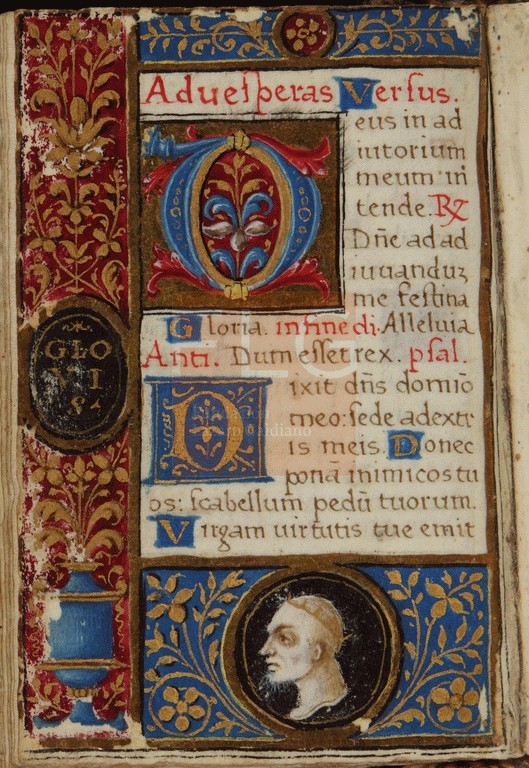 Aduesperas Versus.
Deus in ad
iutorium
meum in
tende. R
Dñe ad ad
iuuanduz
me festina
Gloria. in fine di. Alleluia
Anti. Dum esset rex. psal.
Dixit dñs domiō
meo: sede adextr
is meis. Donec
ponā inimicos tu
os: scabellum pedū tuorum.
Virgam uirtutis tue emit
GLO
VI
S
FLG